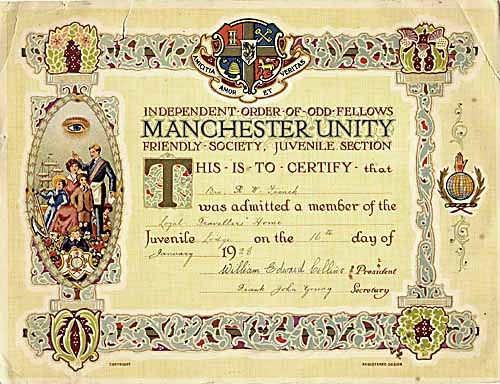 AMICITIA AMOR ET VERITAS
INDEPENDENT·ORDER·OF·ODD·FELLOWS
MANCHESTER UNITY
FRIENDLY·SOCIETY, JUVENILE SECTION
THIS·IS·TO·CERTIFY·that
Bro. W. French
was admitted a member of the
Loyal Travellers' Home
Juvenile Lodge on the 16th day of
January 1928
William Edward Collins President
Frank John Young Secretary
COPYRIGHT
REGISTERED DESIGN